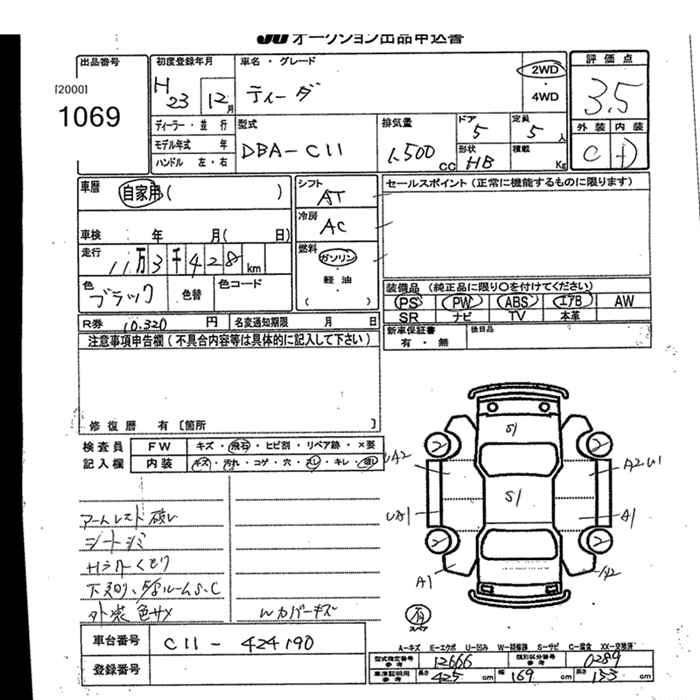 JU オークション出品申込書
出品番号
[2000]
1069
初度登録年月
H 23 12月
車名・グレード
ティーダ
2WD
・
4WD
評価点
3.5
ディーラー・並 行
モデル年式 年
ハンドル 左・右
型式
DBA-C11
排気量
1,500 cc
ドア
5
定員
5 人
形状
HB
積載
Kg
外装 内装
C D
車歴
自家用( )
車検 年 月( 日)
走行
11万3千428km
色
ブラック
色替
色コード
シフト
AT
冷房
AC
燃料
ガソリン
・
軽油
( )
セールスポイント(正常に機能するものに限ります)
装備品(純正品に限り○を付けてください)
PS PW ABS エアB AW
SR ナビ TV 本革
R券 10.320 円
名変通知期限 月 日
新車保証書
有・無
後日品
注意事項申告欄(不具合内容等は具体的に記入して下さい)
修復歴 有[箇所 ]
検査員
記入欄
FW キズ・飛石・ヒビ割・リペア跡・×要
内装
アームレスト破レ
シートシミ
Hライトくもり
外装色サメ
Wカバーキズ
S1
S1
A2
A1
A1
2
2
2
2
スペア
車台番号
C11-424190
登録番号
A-キズ E-エクボ U-凹み W-補修跡 S-サビ C-腐食 XX-交換済
型式指定番号
参考
12666
類別区分番号
参考
0289
車庫証明用
参考
長さ 425 cm 幅 169 cm 高さ 153 cm